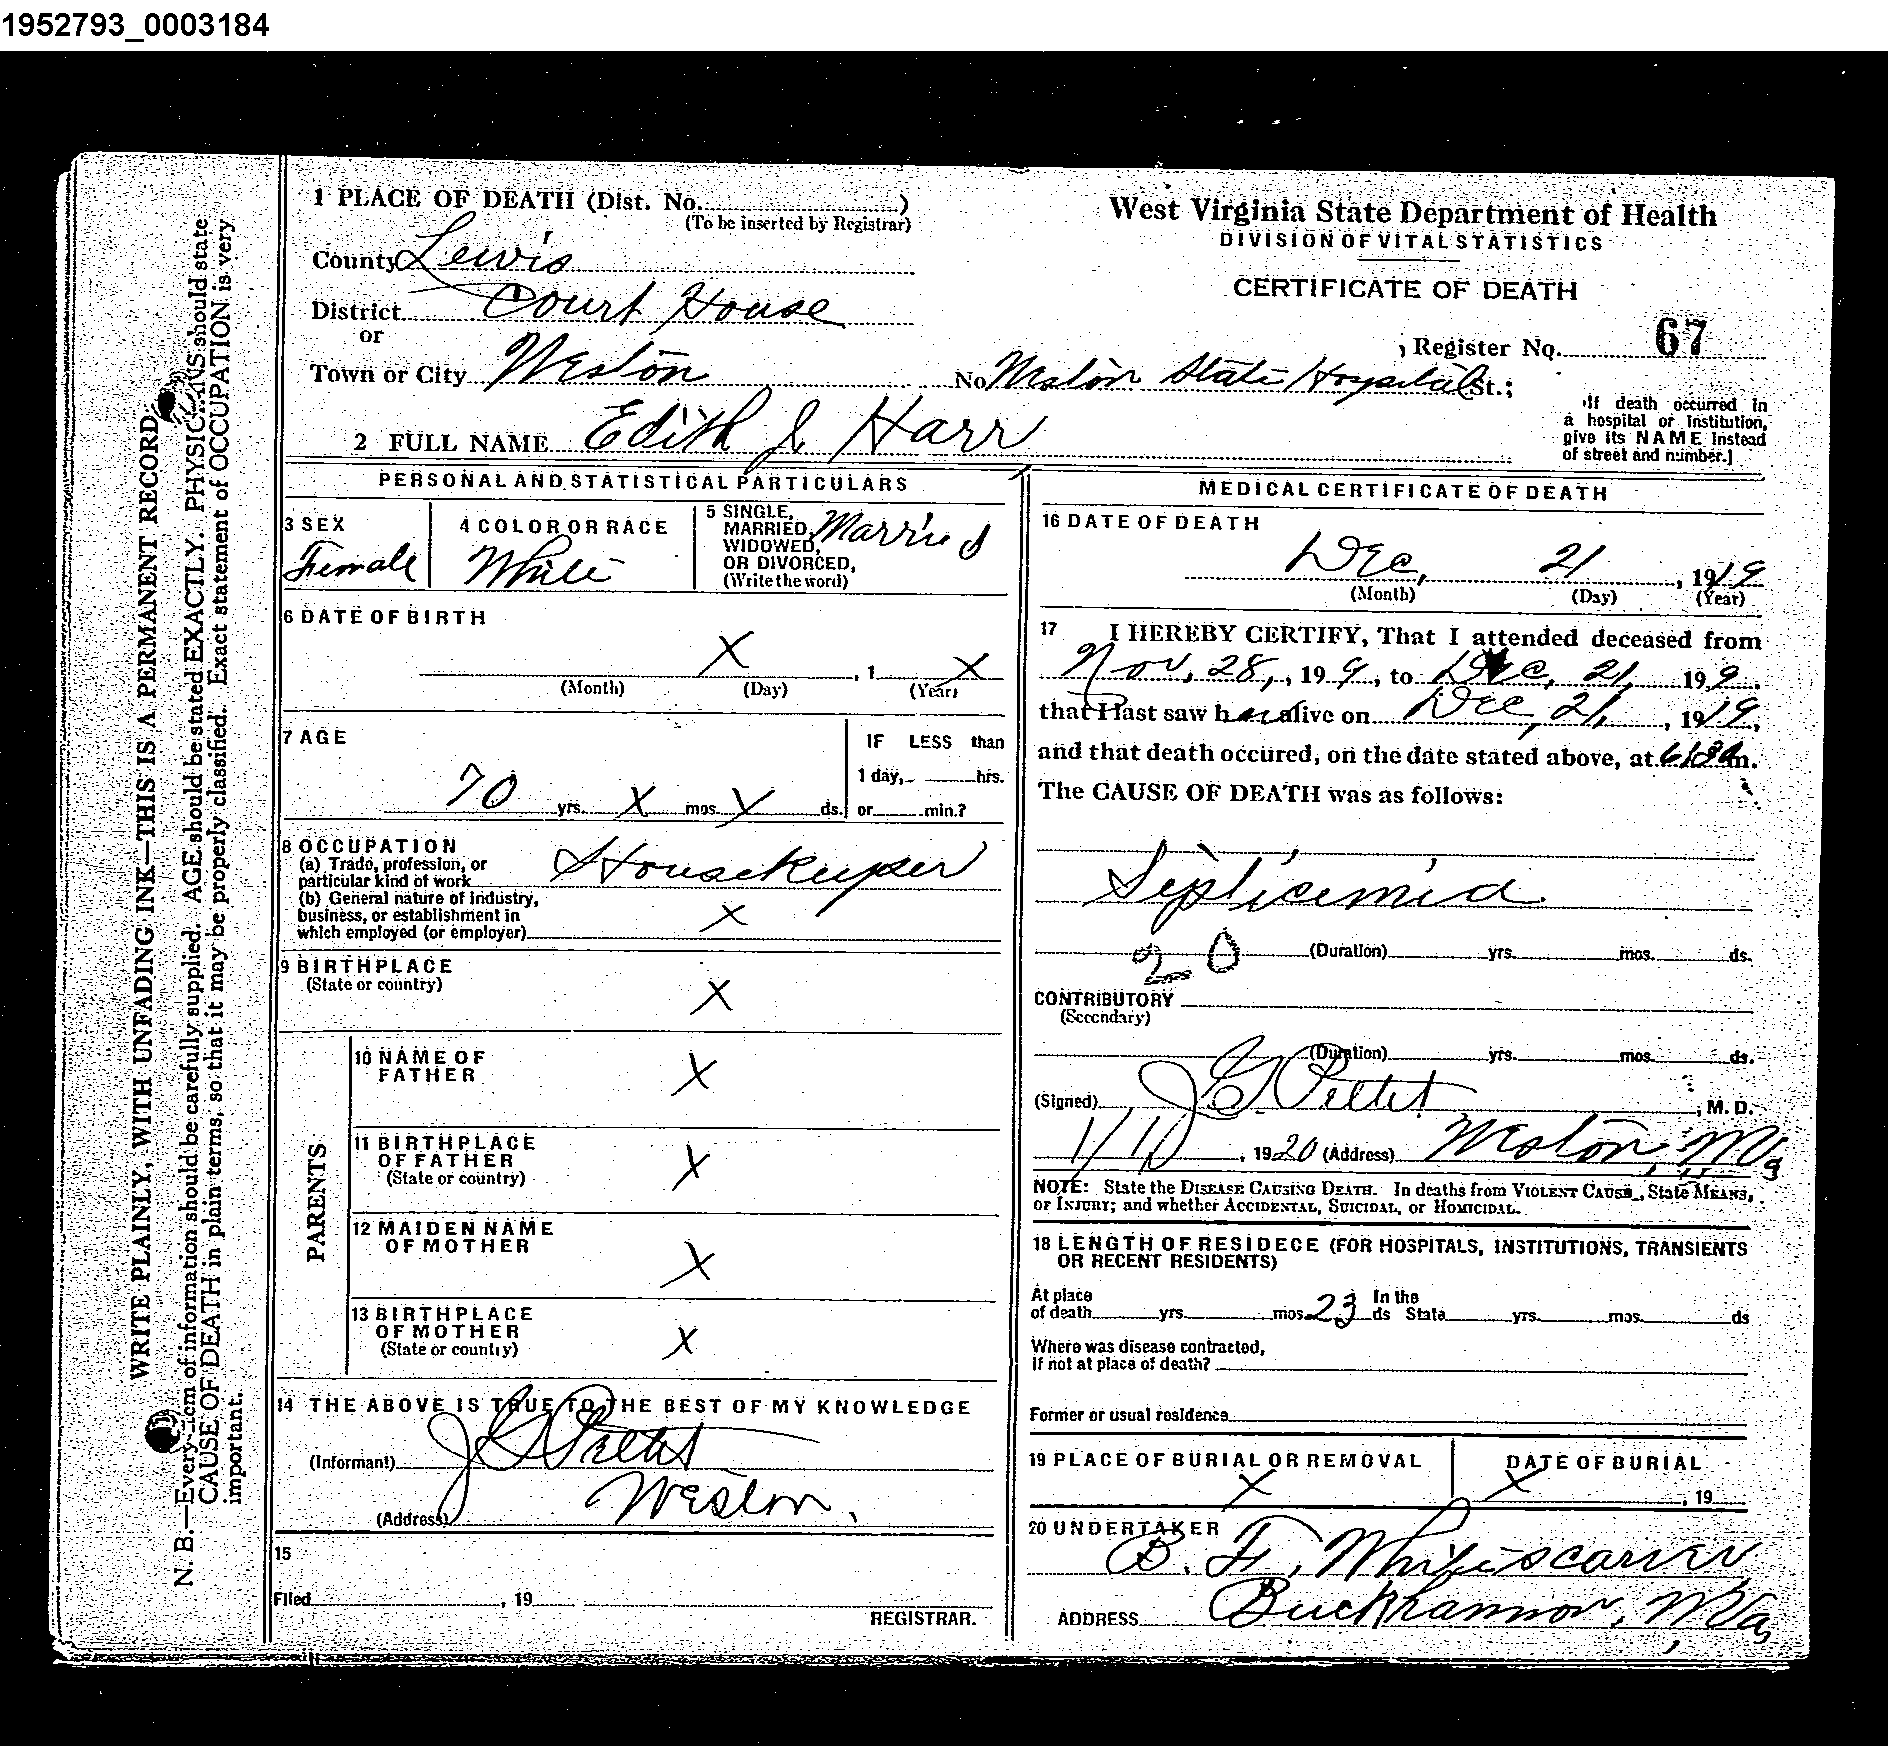 1952793_0003184
WRITE PLAINLY, WITH UNFADING INK—THIS IS A PERMANENT RECORD
N. B.—Every item of information should be carefully supplied. AGE should be stated EXACTLY. PHYSICIANS should state
CAUSE OF DEATH in plain terms, so that it may be properly classified. Exact statement of OCCUPATION is very
important.
1 PLACE OF DEATH (Dist. No. )
(To be inserted by Registrar)
County Lewis
District Court House
or
Town or City Weston
West Virginia State Department of Health
DIVISION OF VITAL STATISTICS
CERTIFICATE OF DEATH
, Register No. 67
No Weston State Hospital St.;
If death occurred in
a hospital or institution,
give its NAME instead
of street and number.]
2 FULL NAME Edith J Harr
PERSONAL AND STATISTICAL PARTICULARS
3 SEX
Female
4 COLOR OR RACE
White
5 SINGLE,
MARRIED,
WIDOWED,
OR DIVORCED,
(Write the word)
Married
6 DATE OF BIRTH
X , 1 X
(Month) (Day) (Year)
7 AGE
70 yrs. X mos. X ds.
IF LESS than
1 day, hrs.
or min.?
8 OCCUPATION
(a) Trade, profession, or
particular kind of work Housekeeper
(b) General nature of Industry,
business, or establishment in
which employed (or employer) X
9 BIRTHPLACE
(State or country) X
PARENTS
10 NAME OF
FATHER X
11 BIRTHPLACE
OF FATHER
(State or country) X
12 MAIDEN NAME
OF MOTHER X
13 BIRTHPLACE
OF MOTHER
(State or country) X
14 THE ABOVE IS TRUE TO THE BEST OF MY KNOWLEDGE
(Informant) J G Pettit
(Address) Weston,
15
Filed , 19
REGISTRAR.
MEDICAL CERTIFICATE OF DEATH
16 DATE OF DEATH
Dec, 21 , 1919
(Month) (Day) (Year)
17 I HEREBY CERTIFY, That I attended deceased from
Nov, 28, , 19 9, to Dec, 21, 19 9.
that I last saw her alive on Dec, 21, , 1919,
and that death occured, on the date stated above, at m.
The CAUSE OF DEATH was as follows:
Septicemia
20 (Duration) yrs. mos. ds.
CONTRIBUTORY
(Secondary)
(Duration) yrs. mos. ds.
(Signed) J G Pettit , M. D.
1/10 , 1920 (Address) Weston, W Va
NOTE: State the DISEASE CAUSING DEATH. In deaths from VIOLENT CAUSE, State MEANS,
OF INJURY; and whether ACCIDENTAL, SUICIDAL, or HOMICIDAL.
18 LENGTH OF RESIDECE (FOR HOSPITALS, INSTITUTIONS, TRANSIENTS
OR RECENT RESIDENTS)
At place In the
of death yrs. mos. 23 ds State yrs. mos. ds
Where was disease contracted,
if not at place of death?
Former or usual residence
19 PLACE OF BURIAL OR REMOVAL
X
DATE OF BURIAL
X , 19
20 UNDERTAKER
B. F. Whitescarver
ADDRESS Buckhannon, W Va,